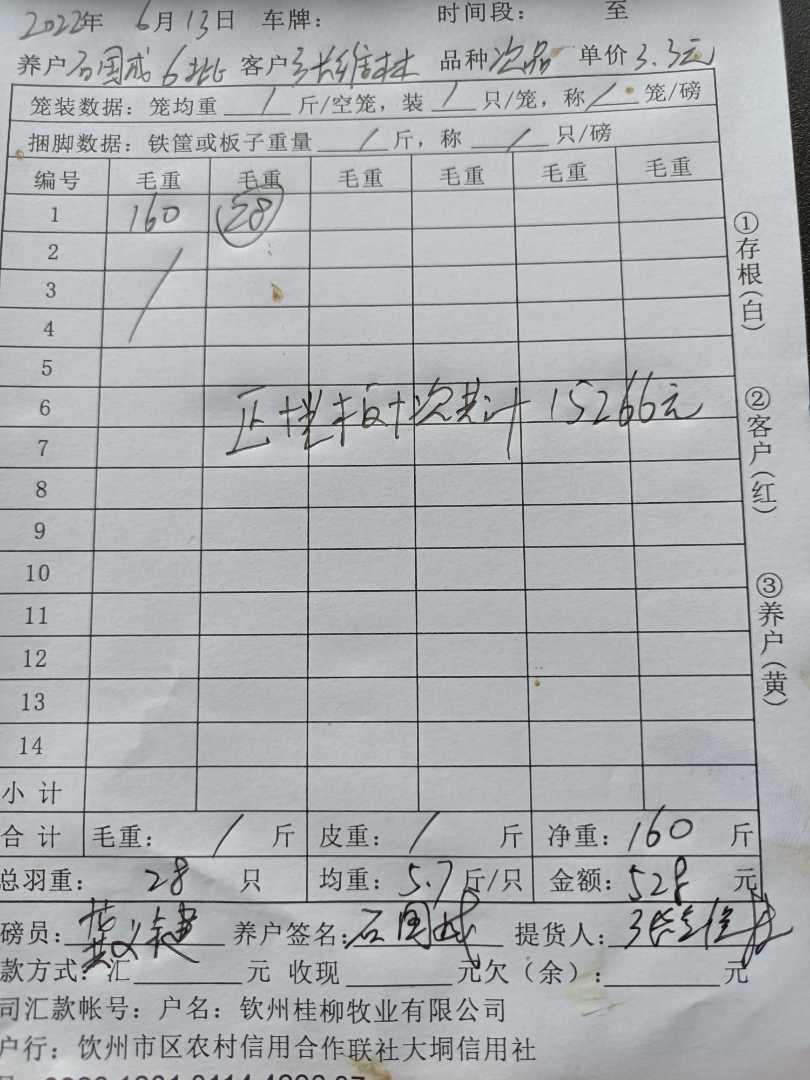 2022年 6月13日 车牌： 时间段： 至
养户石国成6批 客户张维林 品种次品 单价3.3元
笼装数据：笼均重 / 斤/空笼，装 / 只/笼，称 / 笼/磅
捆脚数据：铁筐或板子重量 / 斤，称 / 只/磅
编号 毛重 毛重 毛重 毛重 毛重 毛重
1 160 28
2
3
4
5
6 正 次共计 15266元
7
8
9
10
11
12
13
14
小 计
合 计 毛重： / 斤 皮重： / 斤 净重：160 斤
总羽重： 28 只 均重：5.7斤/只 金额：528 元
磅员： 养户签名：石国成 提货人：张维林
款方式：汇 元 收现 元欠（余）： 元
司汇款帐号：户名：钦州桂柳牧业有限公司
户行：钦州市区农村信用合作联社大垌信用社
①存根（白）
②客户（红）
③养户（黄）